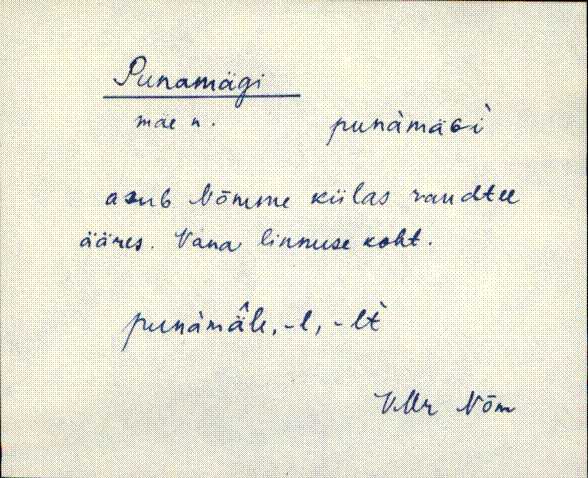 Punamägi
mäe n. punàmäɢì
asub Nõmme külas raudtee
ääres. Vana linnuse koht.
punàmä̂le, -l, -lt̀
VMr Nõm